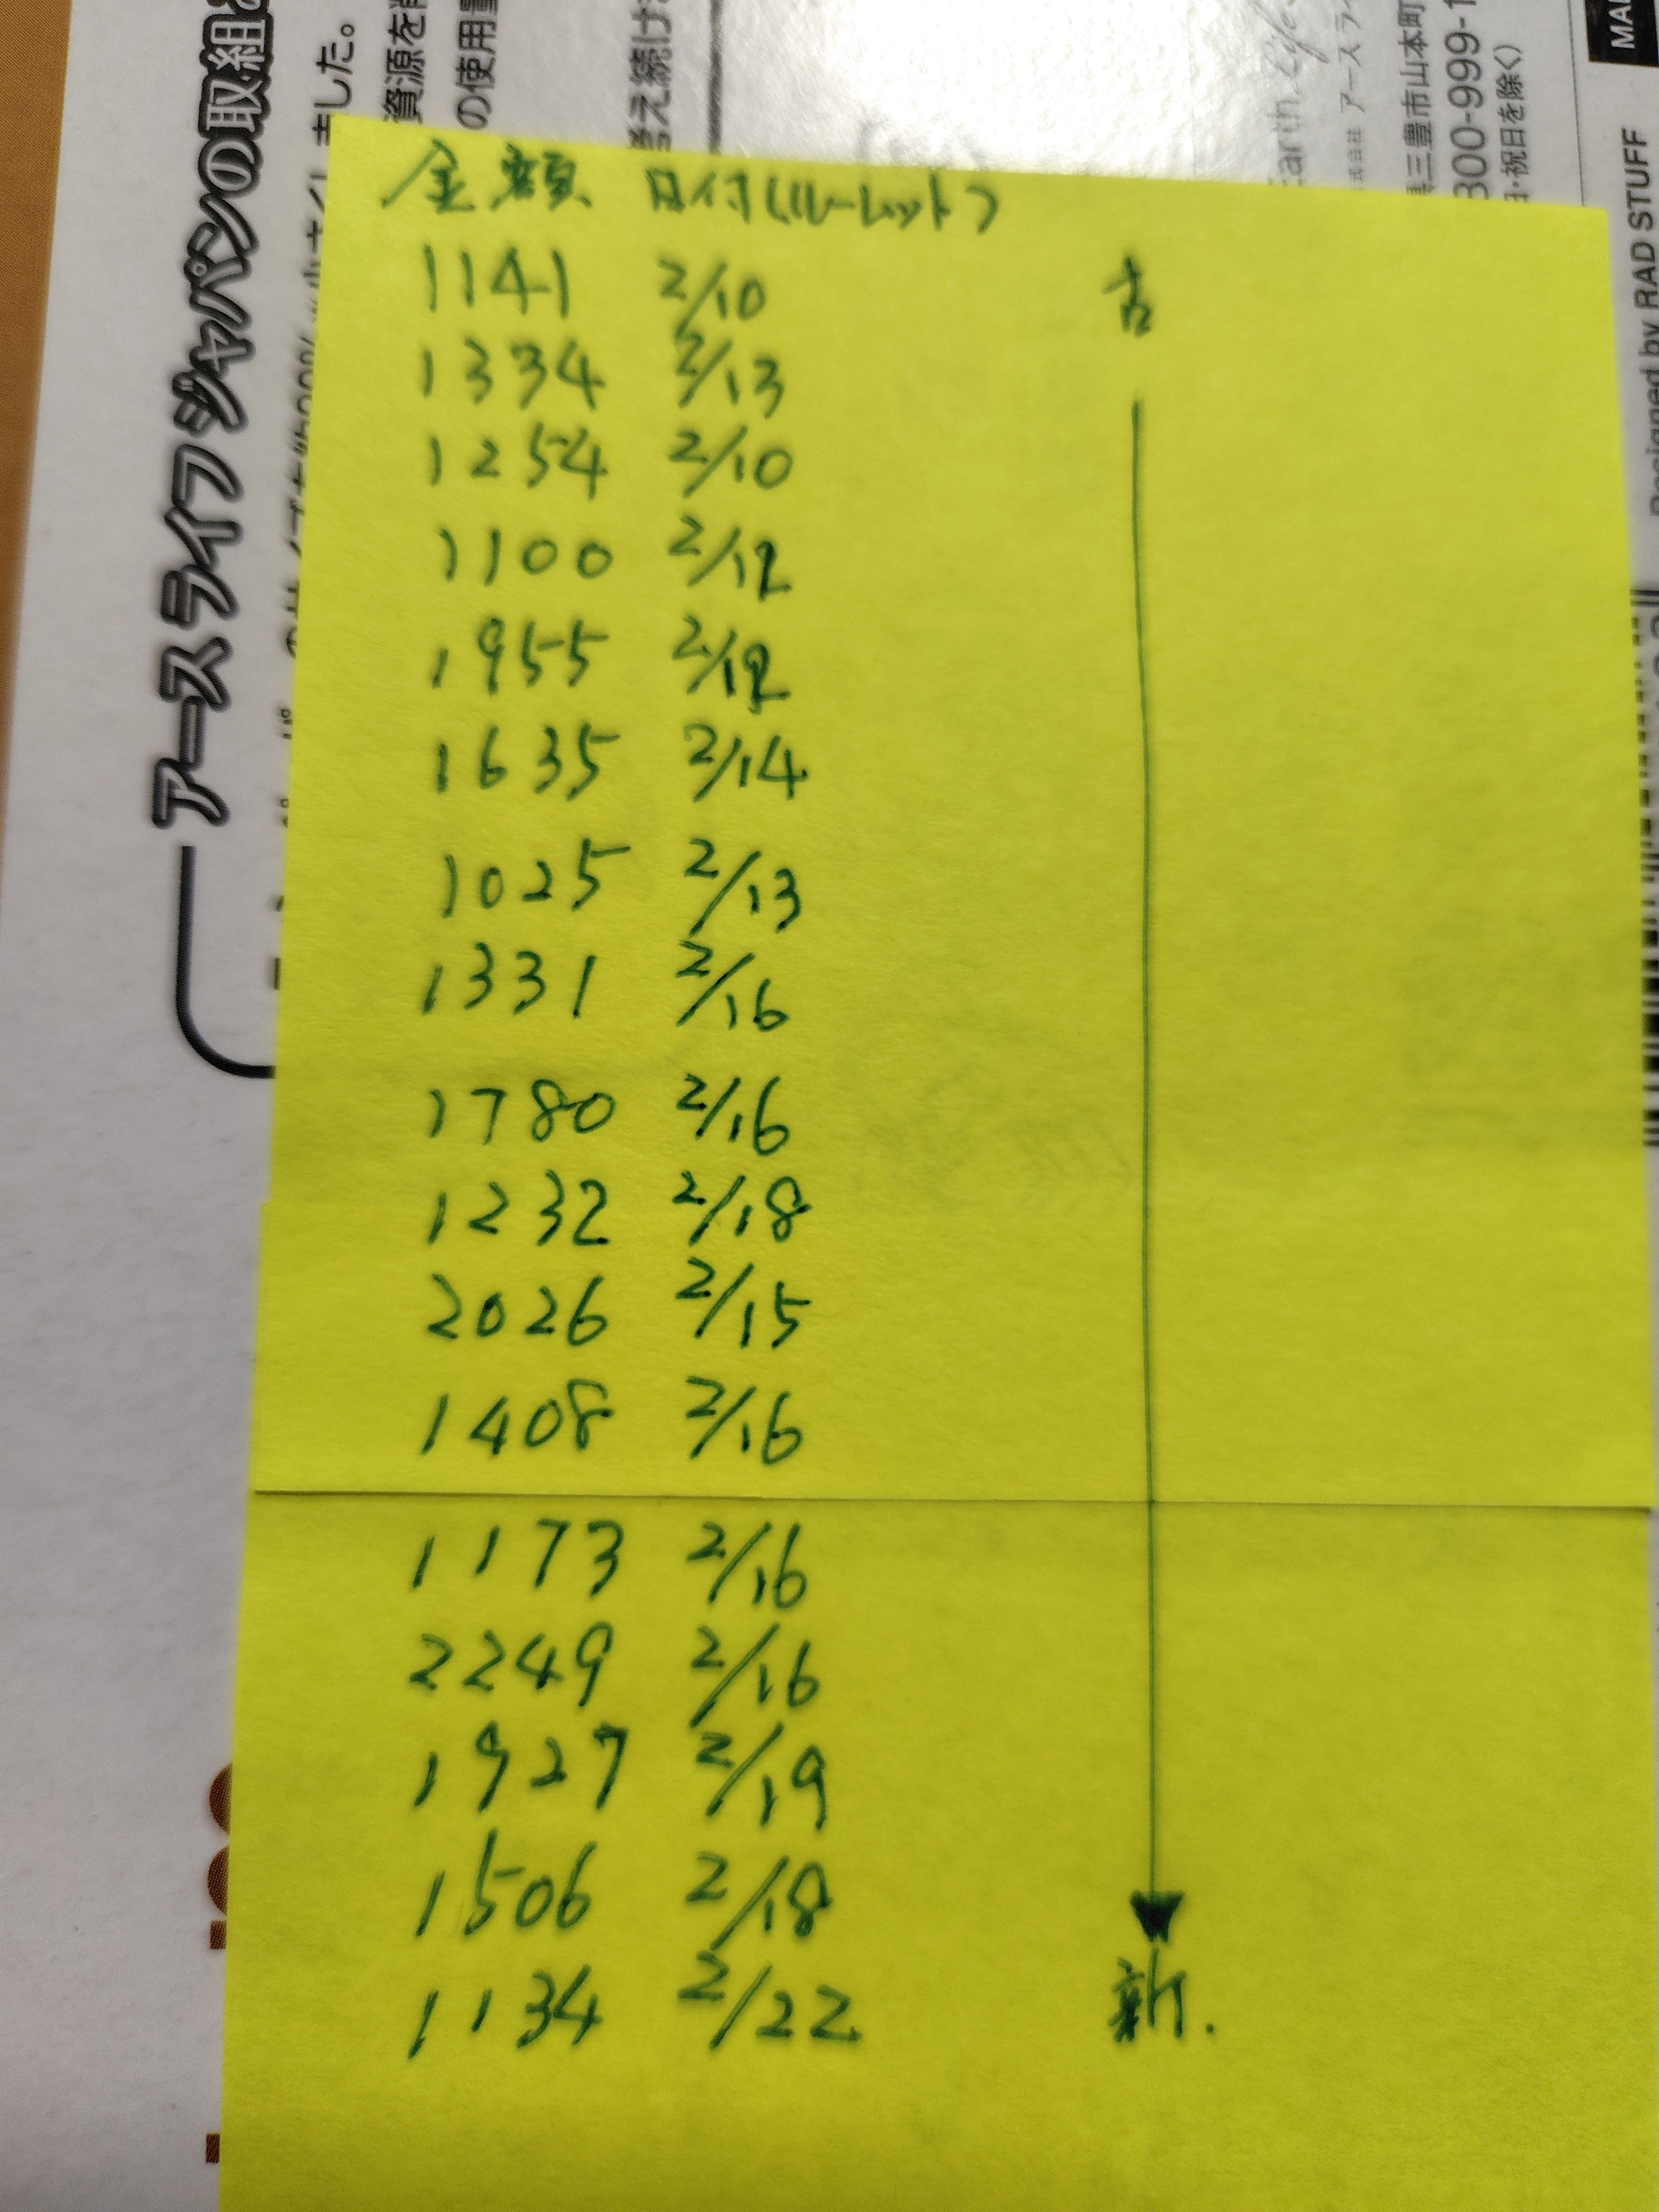 アースライフジャパンの取組み
ました。
資源を削
の使用量
考え続け
Earth.Life
アースライ
三豊市山本町
日・祝日を除く)
Designed by RAD STUFF
金額 日付(ルーレット)
古
1141 2/10
1334 2/13
1254 2/10
1100 2/12
1955 2/12
1635 2/14
1025 2/13
1331 2/16
1780 2/16
1232 2/18
2026 2/15
1408 2/16
1173 2/16
2249 2/16
1927 2/19
1506 2/18
1134 2/22
新.